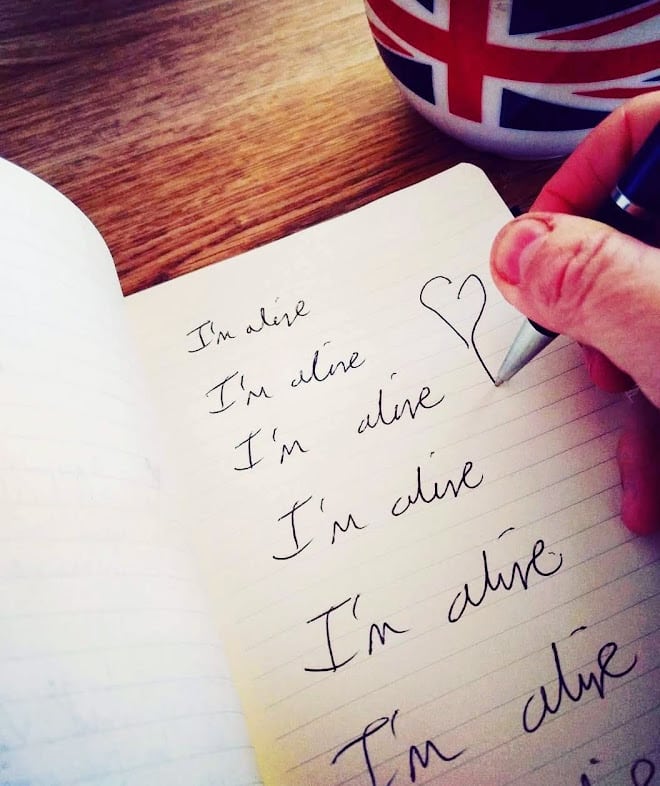 I'm alive
I'm alive
I'm alive
I'm alive
I'm alive
I'm alive